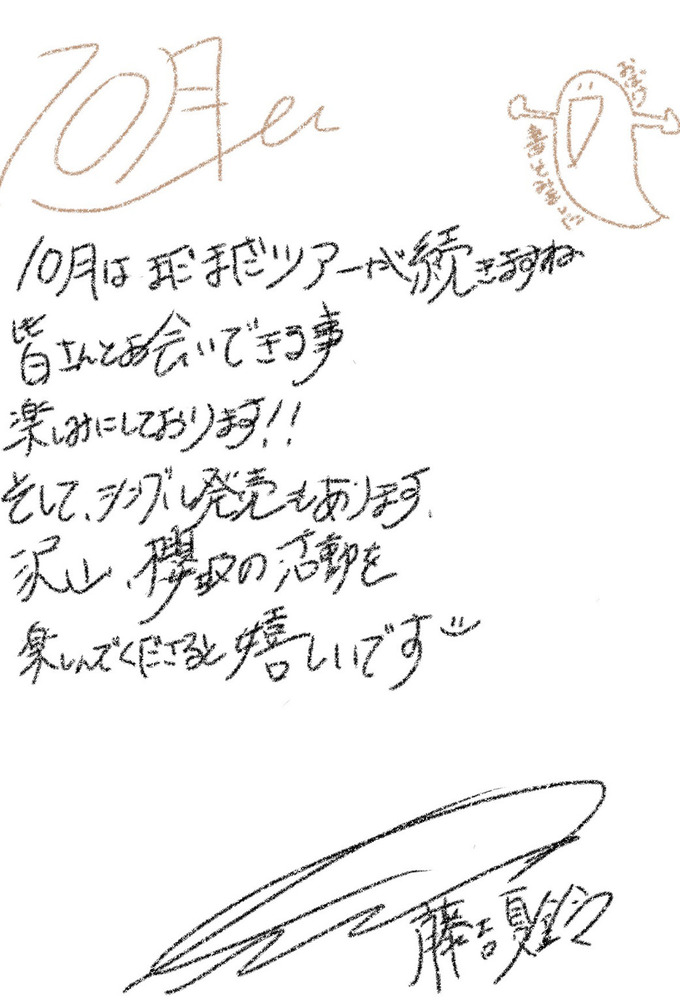 10月
10月は まだまだツアーが続きますね
皆さんとお会いできる事
楽しみにしております!!
そして、シングル発売もあります、
沢山、櫻坂の活動を
楽しんでくださると嬉しいです
藤吉夏鈴